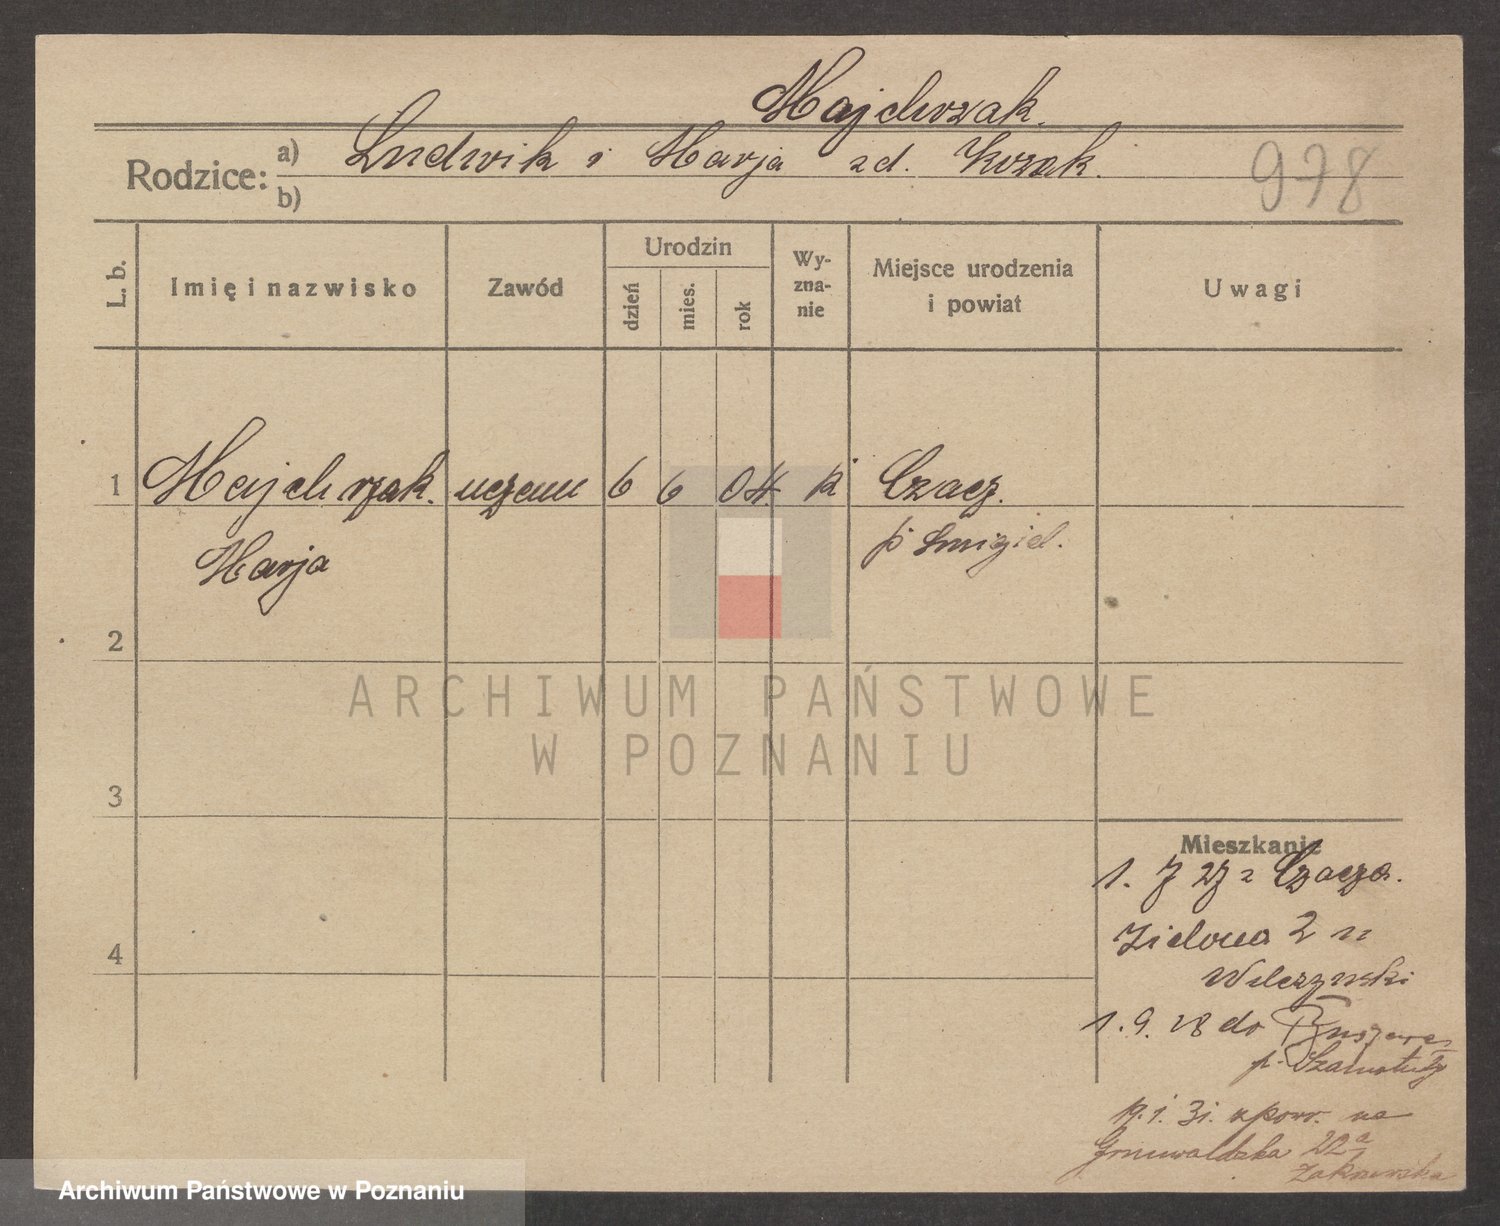 Majchrzak.
Rodzice: a) Ludwik i Marja zd. Kozak.
b)
978
L. b.
Imię i nazwisko
Zawód
Urodzin
dzień
mies.
rok
Wy-
zna-
nie
Miejsce urodzenia
i powiat
Uwagi
1 Majchrzak. uczenn 6 6 04 k Czacz.
Marja
p. Śmigiel.
2
3
4
ARCHIWUM PAŃSTWOWE
W POZNANIU
Mieszkanie
1. 7 27 z Czacza.
Zielona 2 u
Wilczynski
1. 9. 28 do
p. Szamotuły
19. 1. 31. z powr. na
Grunwaldzka 22a
Archiwum Państwowe w Poznaniu